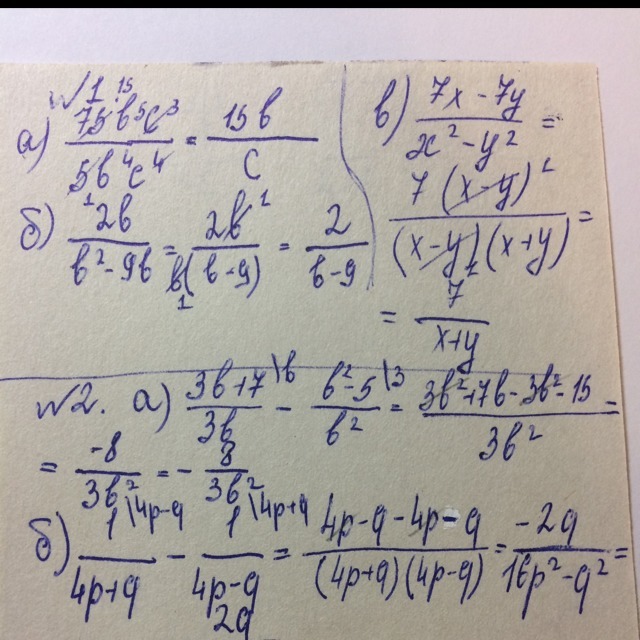 №1
а) 75b⁵c³ / 5b⁴c⁴ = 15b / c
б) 2b / b²-9b = 2b / b(b-9) = 2 / b-9
в) 7x-7y / x²-y² =
7(x-y) / (x-y)(x+y) =
= 7 / x+y
№2. а) 3b+7 \b / 3b - b²-5 \3 / b² = 3b²+7b-3b²-15 / 3b² =
= -8 / 3b² = - 8 / 3b²
б) 1 \4p-q / 4p+q - 1 \4p+q / 4p-q = 4p-q-4p-q / (4p+q)(4p-q) = -2q / 16p²-q² =
2q